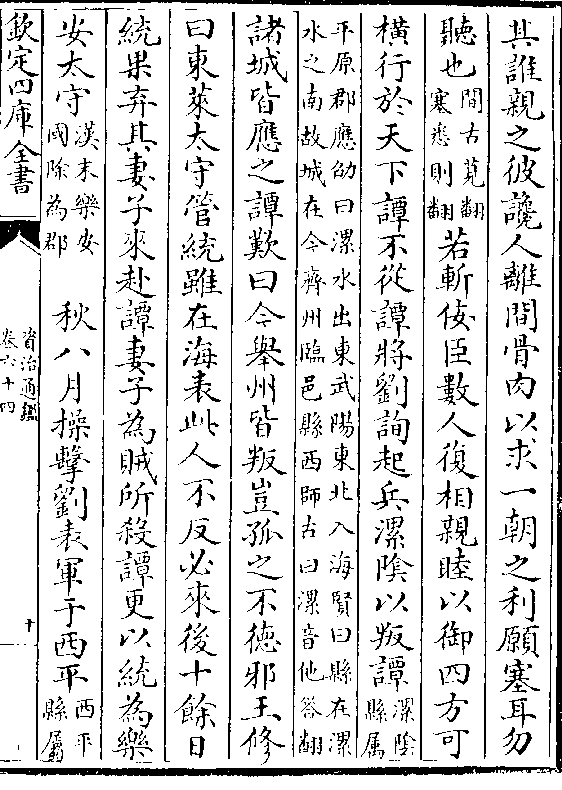 其誰親之彼讒人離間骨肉以求一朝之利願塞耳勿
聽也間古莧翻塞悉則翻若斬佞臣數人復相親睦以御四方可
橫行於天下譚不從譚將劉詢起兵漯隂以叛譚漯隂縣屬
平原郡應劭曰漯水出東武陽東北入海賢曰縣在漯
水之南故城在今齊州臨邑縣西師古曰漯音他荅翻
諸城皆應之譚歎曰今舉州皆叛豈孤之不德邪王修
曰東萊太守管統雖在海表此人不反必來後十餘日
統果弃其妻子來赴譚妻子為賊所殺譚更以統為樂
安太守漢末樂安國除為郡 秋八月操擊劉表軍于西平西平縣屬
欽定四庫全書
資治通鑑
卷六十四
十